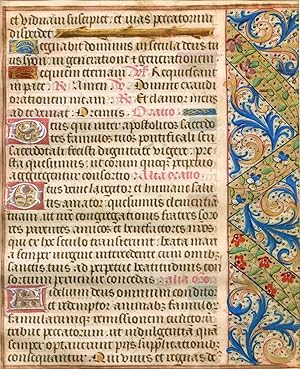 et viduam suscipiet et vias peccatorum
disperdet
Regnabit dominus in secula deus tu
us syon in generatione et generationem
Requiem eternam V Requiescant
in pace R Amen Domine exaudi
orationem meam R Et clamor meus
ad te veniat Oremus Oratio
Deus qui inter apostolicos sacer
dotes famulos tuos pontificali seu
sacerdotali fecisti dignitate vigere pre
sta quesumus ut eorum quoque perpetuo
aggregentur consortio Alia oratio
Deus venie largitor et humane salu
tis amator quesumus clementiā
tuam ut nre congregationis fratres soro
res parentes amicos et benefactores nros
qui ex hoc seculo transierunt beata maria
semper virgine intercedente cum omnibus
sanctis tuis ad perpetue beatitudinis con
sortium pervenire concedas Alia oro
Fidelium deus omnium conditor
et redemptor animabus famulor
famularumque remissionem cunctorū
tribue peccatorum ut indulgentiā quā
semper optaverunt piis supplicationibus
consequantur Qui vivis et regnas de